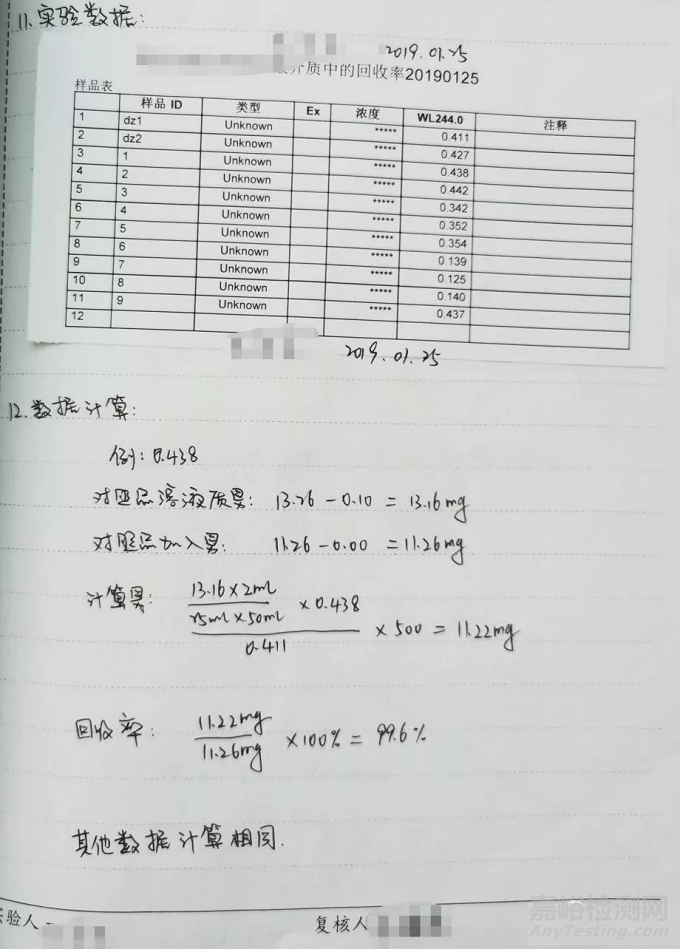 11.实验数据:
2019.01.25
介质中的回收率20190125
样品表
样品 ID 类型 Ex 浓度 WL244.0 注释
1 dz1 Unknown ***** 0.411
2 dz2 Unknown ***** 0.427
3 1 Unknown ***** 0.438
4 2 Unknown ***** 0.442
5 3 Unknown ***** 0.342
6 4 Unknown ***** 0.352
7 5 Unknown ***** 0.354
8 6 Unknown ***** 0.139
9 7 Unknown ***** 0.125
10 8 Unknown ***** 0.140
11 9 Unknown ***** 0.437
12
2019.01.25
12.数据计算:
例: 0.438
对照品溶液质量: 13.26 - 0.10 = 13.16mg
对照品加入量: 11.26 - 0.00 = 11.26mg
13.16×2ml
计算量: ×0.438
25ml×50ml
×500 = 11.22mg
0.411
11.22mg
回收率: ×100% = 99.6%
11.26mg
其他数据计算相同.
验人
复核人
嘉峪检测网
AnyTesting.com